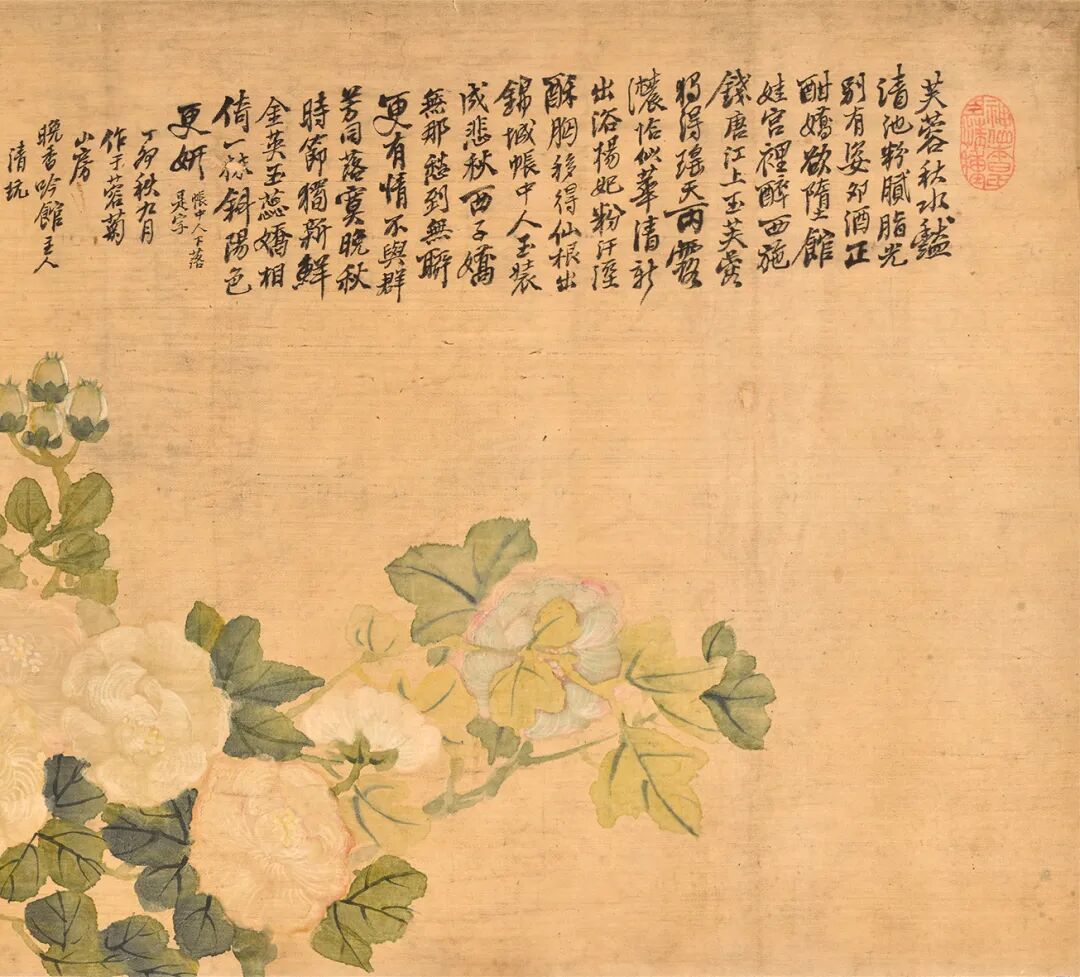 芙蓉秋水豔
清池粉膩脂光
別有姿卯酒正
酣嬌欲墮館
娃宮裡醉西施
錢唐江上玉芙蓉
獨得瑤天雨露
濃恰似華清新
出浴楊妃粉汗溼
酥胸移得仙根出
錦城帳中人玉裝
成悲秋西子嬌
無那愁到無聊
更有情不與群
芳同落寞晚秋
時節獨新鮮
金英玉蕊嬌相
倚一樣斜陽色
更妍 帳中人下落
是字
丁卯秋九月
作于蓉菊
山房
晚香吟館主人
清玩